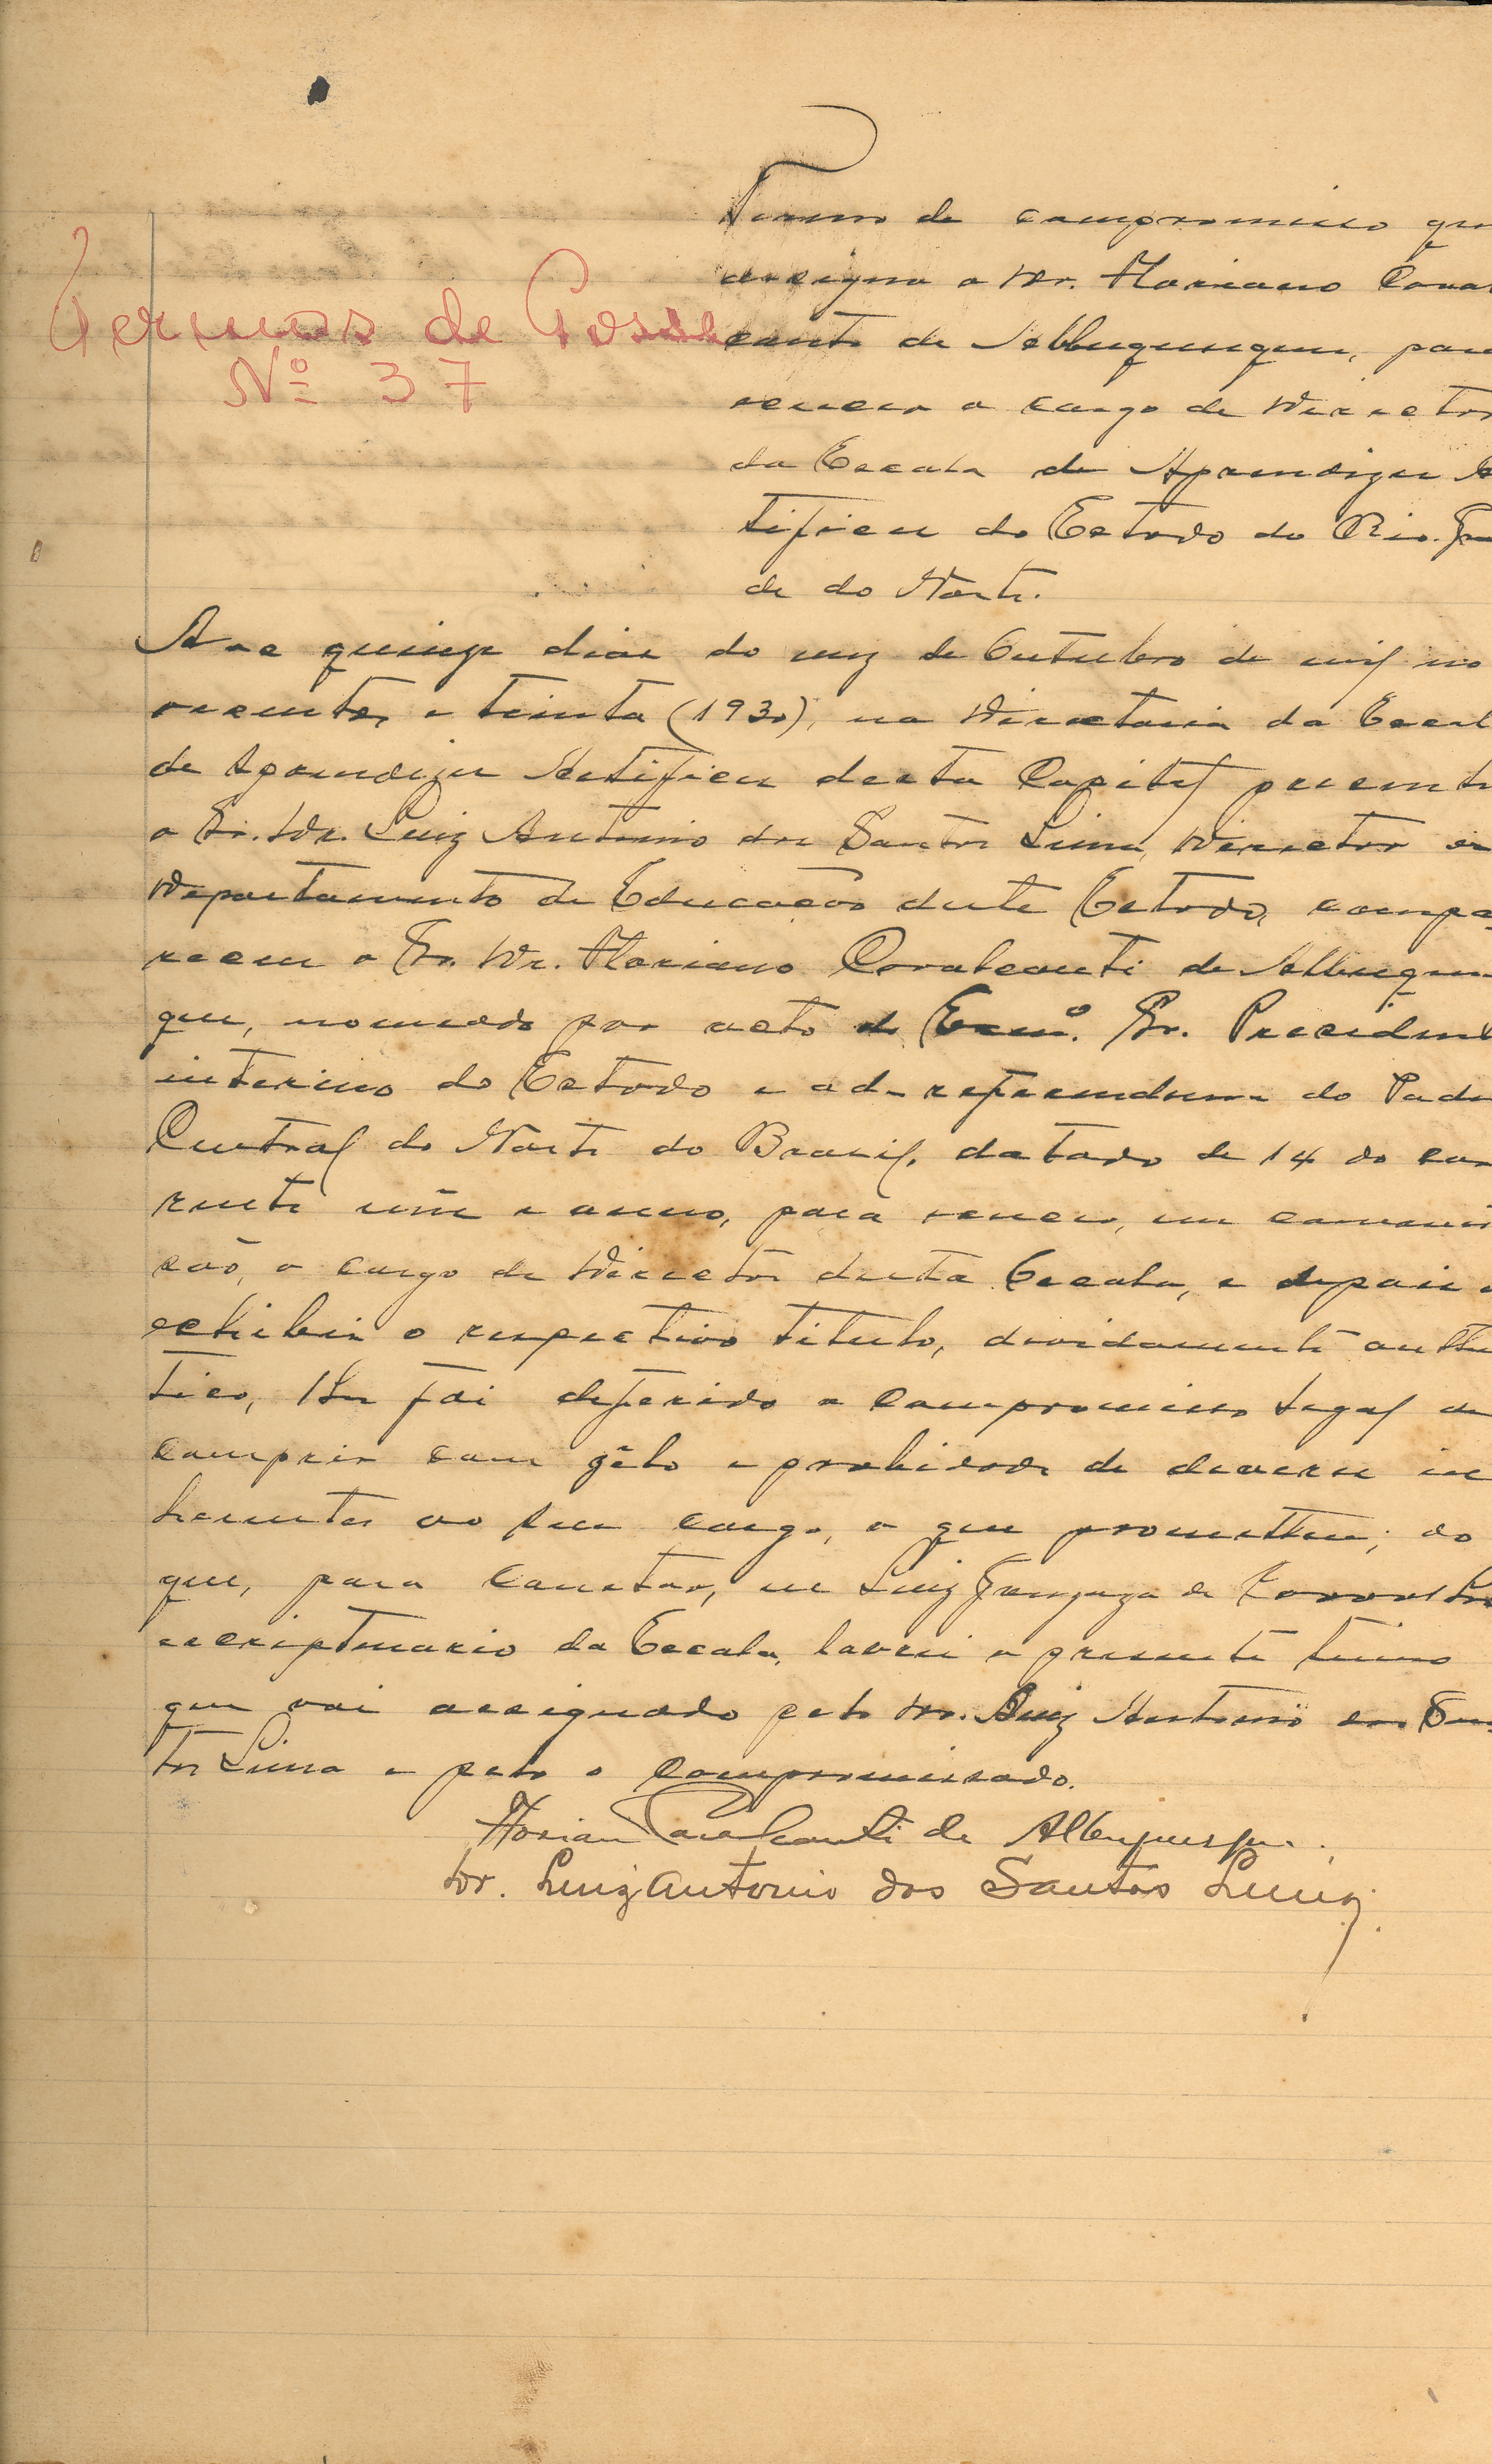 Termo de compromisso que
assigna o Dr. Floriano Caval
canti de Albuquerque, para
exercer o cargo de Director
da Escola de Aprendizes Ar
tifices do Estado do Rio Gran
de do Norte.
Termos de Posse
Nº 37
Aos quinze dias do mez de Outubro de mil no
vecentos e trinta (1930), na Directoria da Escol
de Aprendizes Artifices desta Capital presente
o Sr. Dr. Luiz Antonio dos Santos Lima, Director do
Departamento de Educação deste Estado, compa
receu o Sr. Dr. Floriano Cavalcanti de Albuquer
que, nomeado por acto do Exmº. Sr. Presidente
interino do Estado e ad-referendum do Poder
Central do Norte do Brasil, datado de 14 do cor
rente mês e anno, para exercer, em commis
são, o cargo de Director desta Escola, e depois d
exhibir o respectivo titulo, devidamente authen
tico, lhe foi deferido o compromisso legal de
cumprir com zêlo e probidade os deveres in
herentes ao seu cargo, o que prometteu; do
que, para constar, eu Luiz Gonzaga de
escripturario da Escola, lavrei o presente termo
que vai assignado pelo Dr. Luiz Antonio dos San
tos Lima e pelo o compromissado.
Floriano Cavalcanti de Albuquerque.
Dr. Luiz Antonio dos Santos Lima.